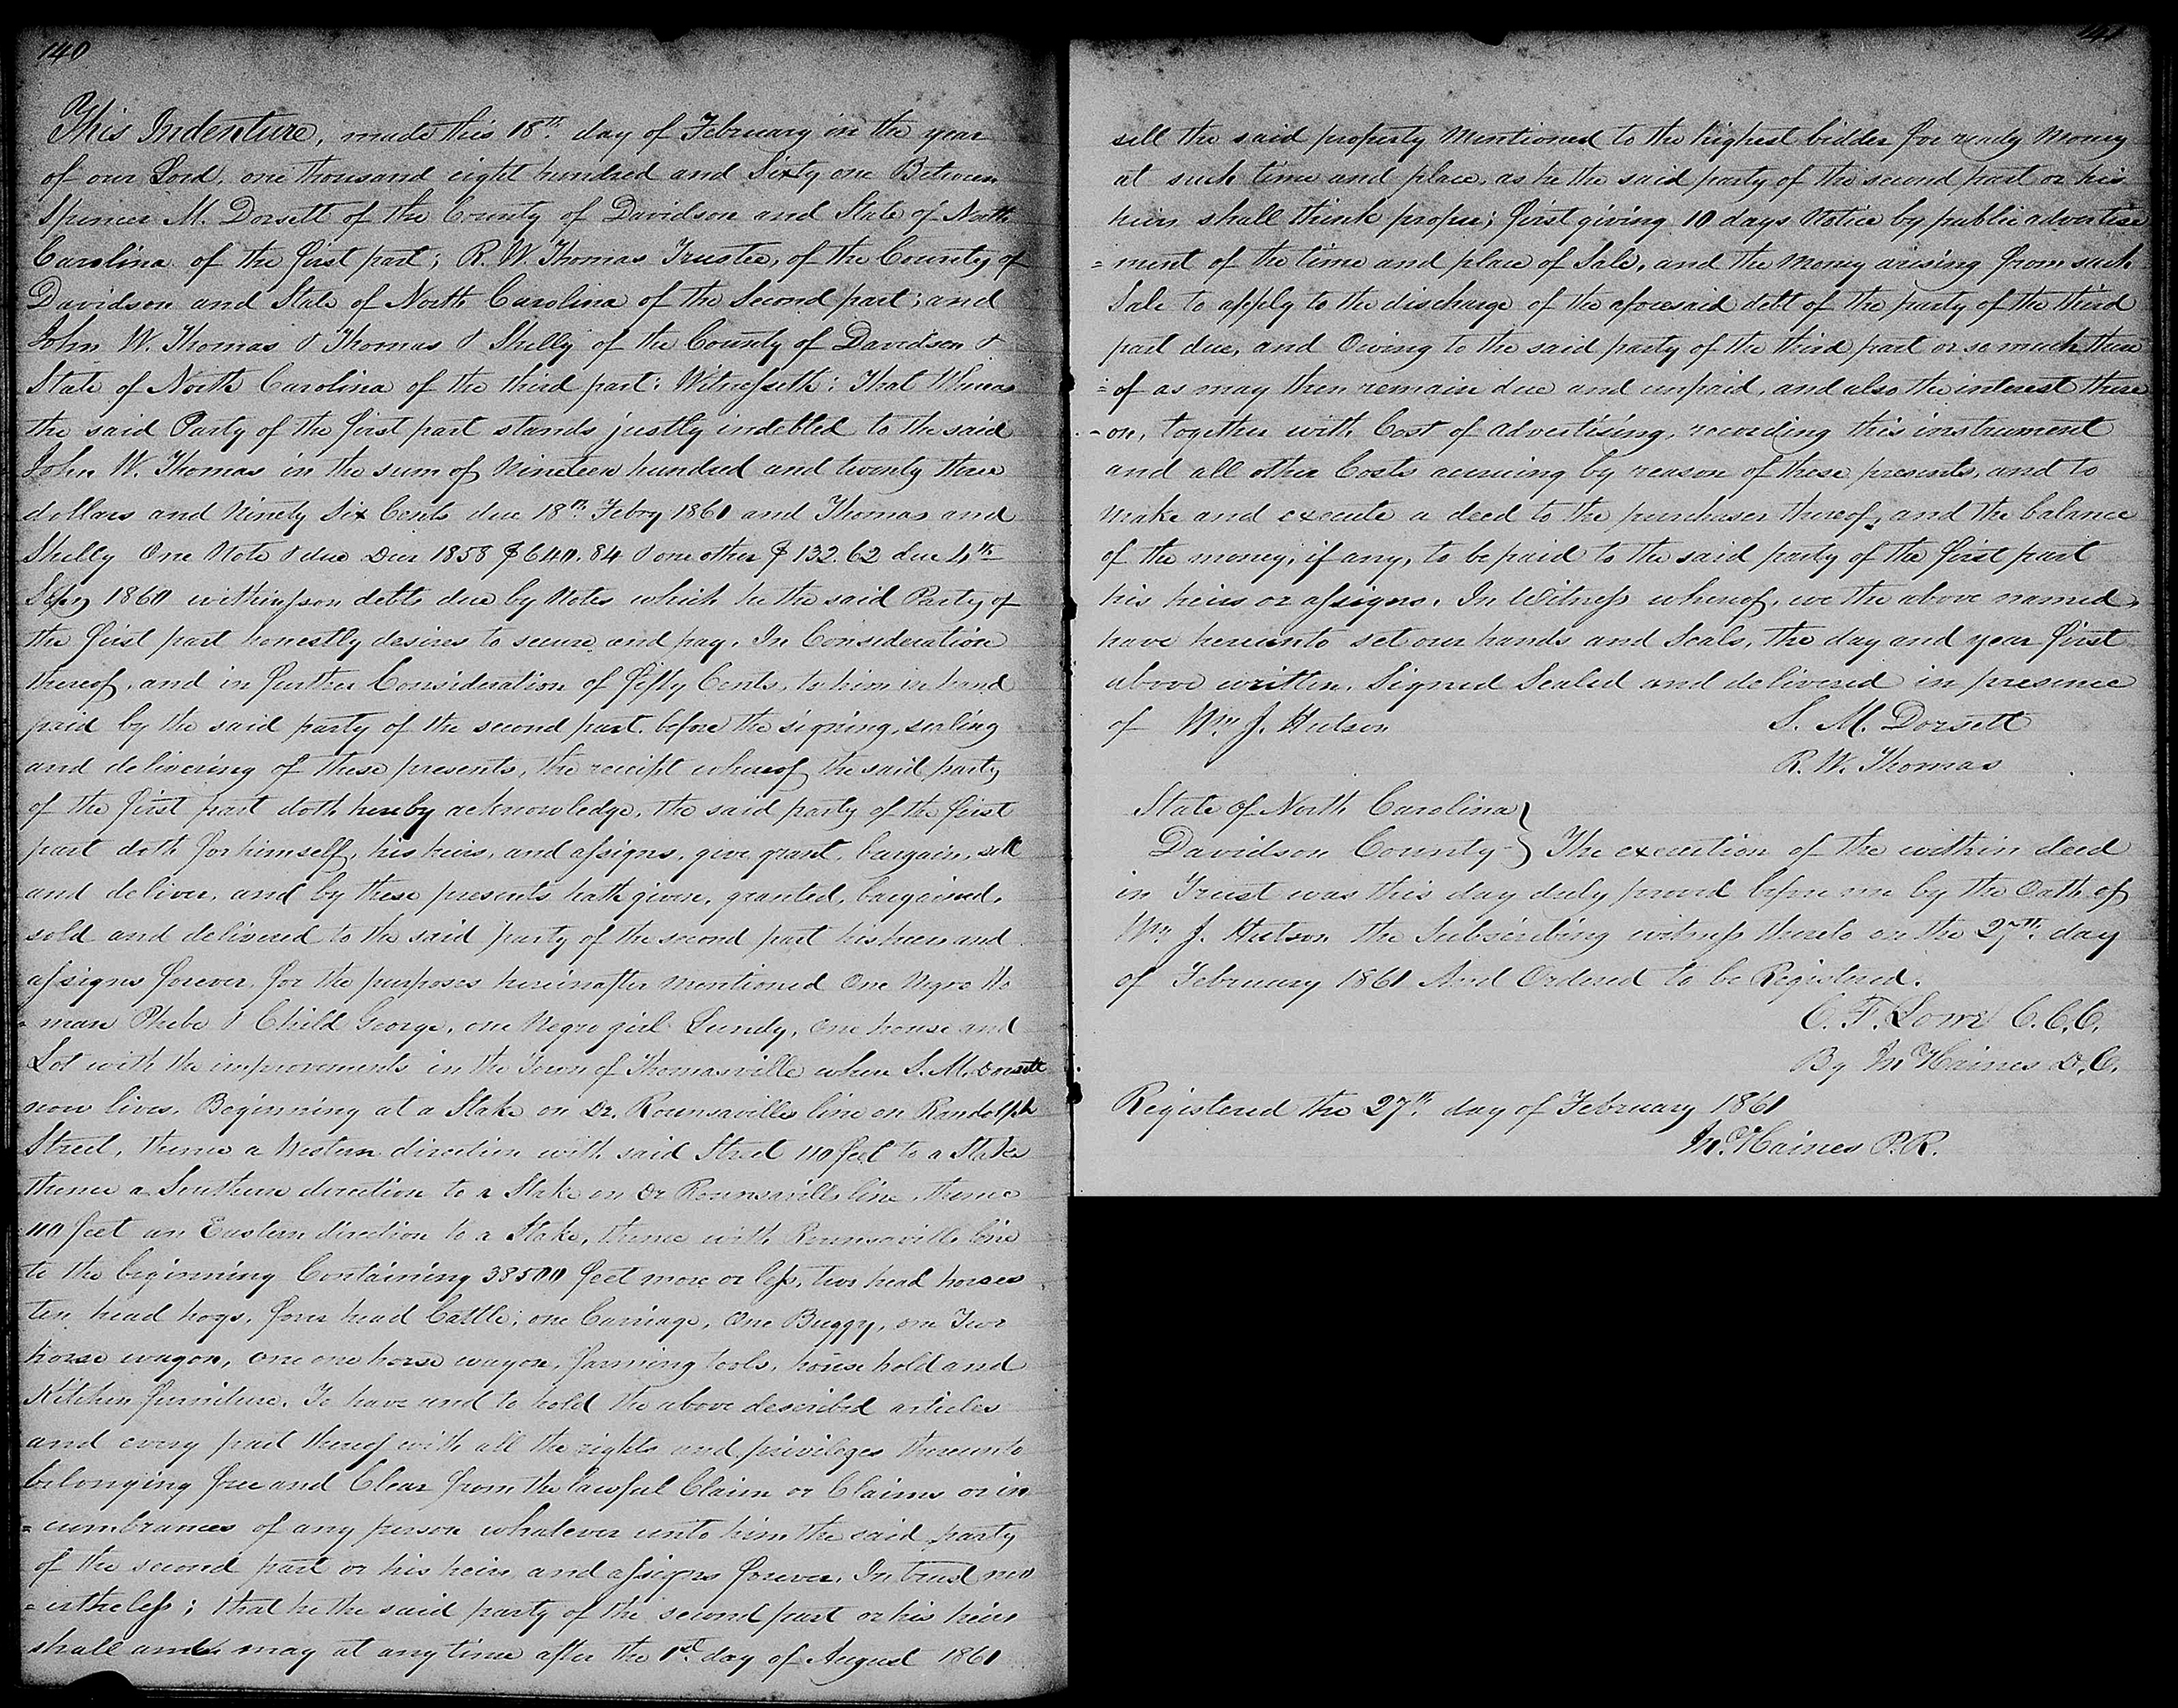 140
This Indenture, made this 18th day of February in the year
of our Lord, one thousand eight hundred and Sixty one Between
Spencer M. Dorsett of the County of Davidson and State of North
Carolina of the first part; R. W. Thomas Trustee, of the County of
Davidson and State of North Carolina of the Second part; and
John W. Thomas & Thomas & Shelly of the County of Davidson &
State of North Carolina of the third part: Witnesseth: That Whereas
the said Party of the first part stands justly indebted to the said
John W. Thomas in the sum of Nineteen hundred and twenty three
dollars and Ninety Six Cents due 18th Febry 1861 and Thomas and
Shelly One Note & due Decr 1858 $640.84 & one other $132.62 due 4th
1860 debts due by Notes which he the said Party of
the first part honestly desires to secure and pay. In Consideration
thereof, and in further Consideration of fifty Cents, to him in hand
paid by the said party of the second part, before the signing, sealing
and delivering of these presents, the receipt whereof the said party
of the first part doth hereby acknowledge, the said party of the first
part doth for himself, his heirs, and assigns, give, grant, bargain, sell
and deliver, and by these presents hath given, granted, bargained,
sold and delivered to the said party of the second part his heirs and
assigns forever for the purposes hereinafter mentioned One Negro Wo
=man Phebe & Child George, one Negro girl Lundy, One house and
Lot with the improvements in the Town of Thomasville where S. M. Dorsett
now lives. Beginning at a Stake on Dr. Rounsavilles line on Randolph
Street, thence a Western direction with said Street 110 feet to a Stake
thence a Southern direction to a Stake on Dr Rounsavills line, thence
110 feet an Eastern direction to a Stake, thence with Rounsavills line
to the beginning Containing 38500 feet more or less, two head horses
ten head hogs, four head Cattle; one Carriage, One Buggy, one Two
horse wagon, one one horse wagon, farming tools, house hold and
Kitchen furniture. To have and to hold the above described articles
and every part thereof with all the rights and privileges thereunto
belonging free and Clear from the lawful Claim or Claims or in
=cumbrances of any person whatever unto him the said party
of the second part or his heirs and assigns forever. In trust nev
=ertheless; that he the said party of the second part or his heirs
shall and may at any time after the 1st day of August 1861
141
sell the said property Mentioned to the highest bidder for ready Money
at such time and place, as he the said party of the second part or his
heirs shall think proper; first giving 10 days Notice by public advertise
=ment of the time and place of Sale, and the Money arising from such
Sale to apply to the discharge of the aforesaid debt of the party of the third
part due, and Owing to the said party of the third part or so much there
=of as may then remain due and unpaid, and also the interest there
=on, together with Cost of advertising, recording this instrument
and all other Costs accruing by reason of these presents, and to
Make and execute a deed to the purchaser thereof, and the balance
of the money, if any, to be paid to the said party of the first part
his heirs or assigns. In Witness whereof, we the above named,
have hereunto set our hands and Seals, the day and year first
above written. Signed Sealed and delivered in presence
of Wm J. Hutson S. M. Dorsett
R. W. Thomas
State of North Carolina }
Davidson County } The execution of the within deed
in Trust was this day duly proved before me by the Oath of
Wm J. Hutson the Subscribing witness thereto on the 27th day
of February 1861 And Ordered to be Registered.
C. F. Lowe C.C.C.
By Jno Haines D.C.
Registered the 27th day of February 1861
Jno Haines P.R.